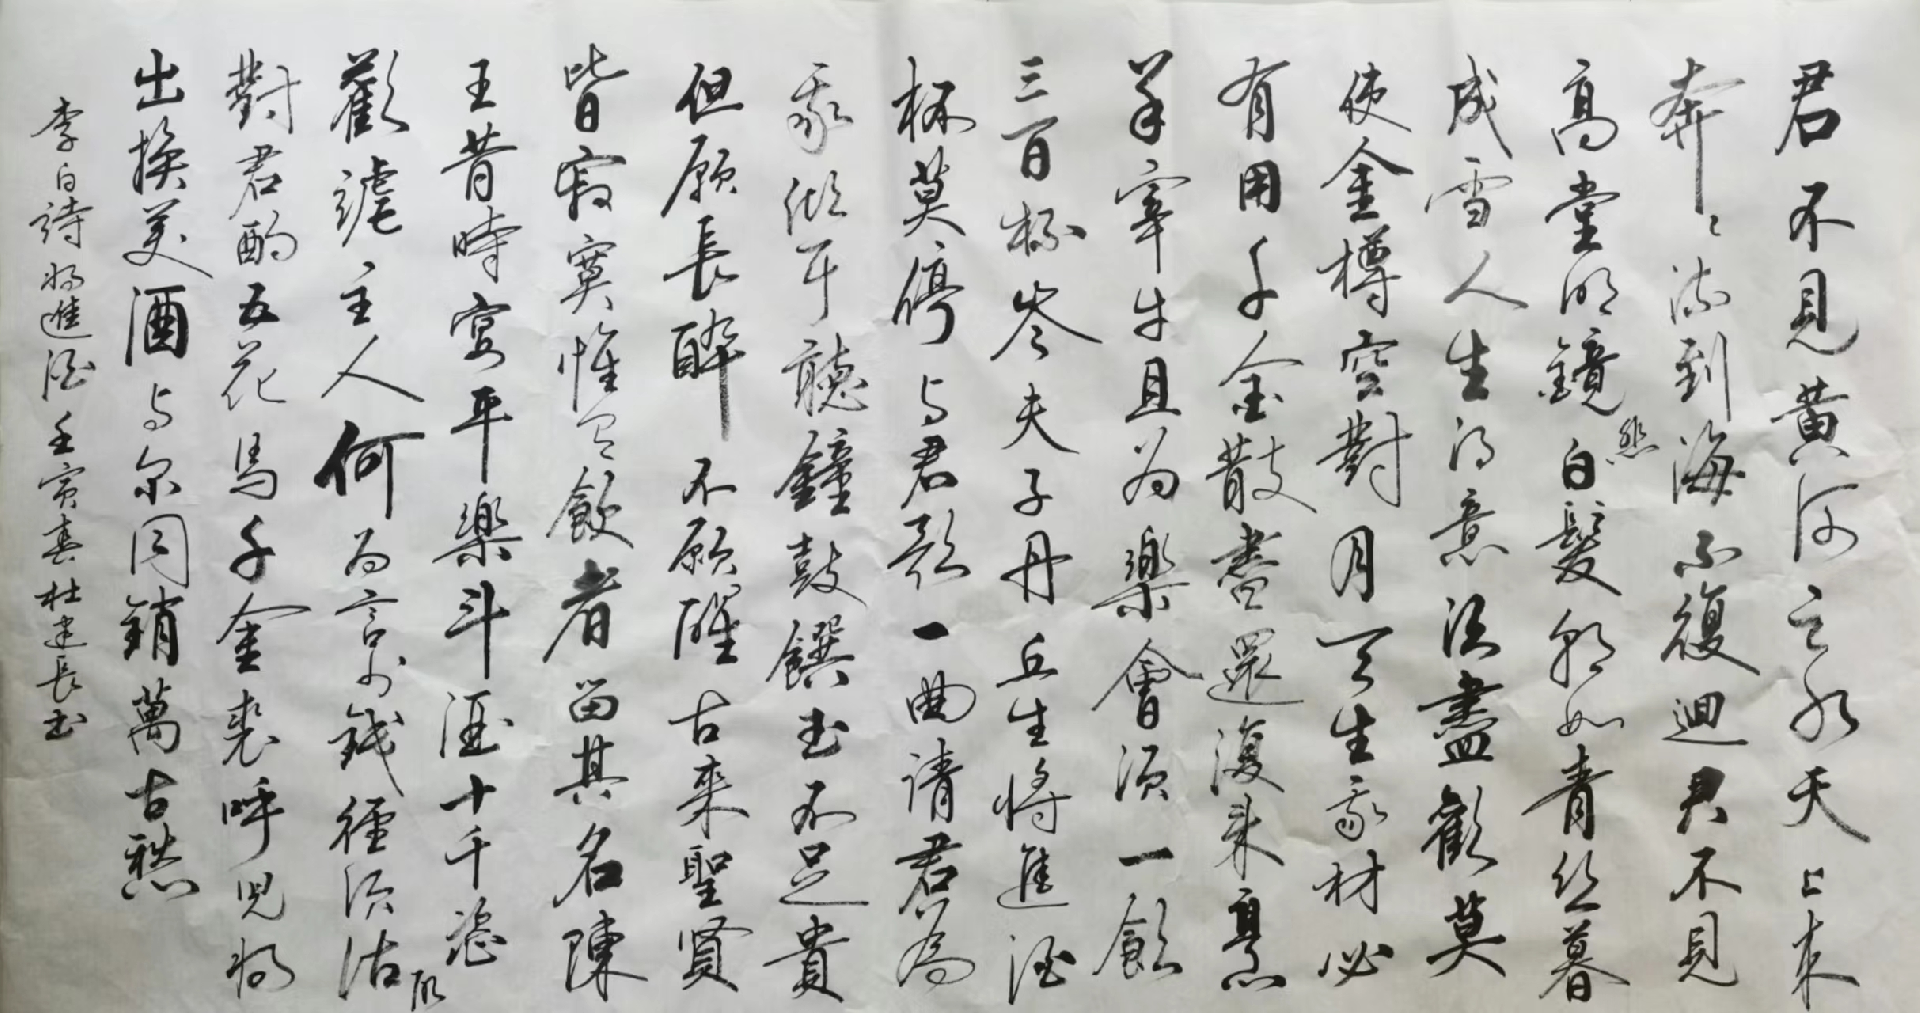 君不見黄河之水天上来
奔〻流到海不復迴君不見
高堂明鏡悲白髮朝如青丝暮
成雪人生得意须盡歡莫
使金樽空對月天生我材必
有用千金散盡還復来烹
羊宰牛且为樂會须一飲
三百杯岑夫子丹丘生將進酒
杯莫停与君歌一曲请君为
我倾耳聽鐘鼓饌玉不足贵
但願長醉不願醒古来聖贤
皆寂寞惟有飲者留其名陳
王昔時宴平樂斗酒十千恣
歡謔主人何为言少錢徑须沽取
對君酌五花馬千金裘呼児将
出换美酒与尔同銷萬古愁
李白詩将進酒壬寅春杜建長书